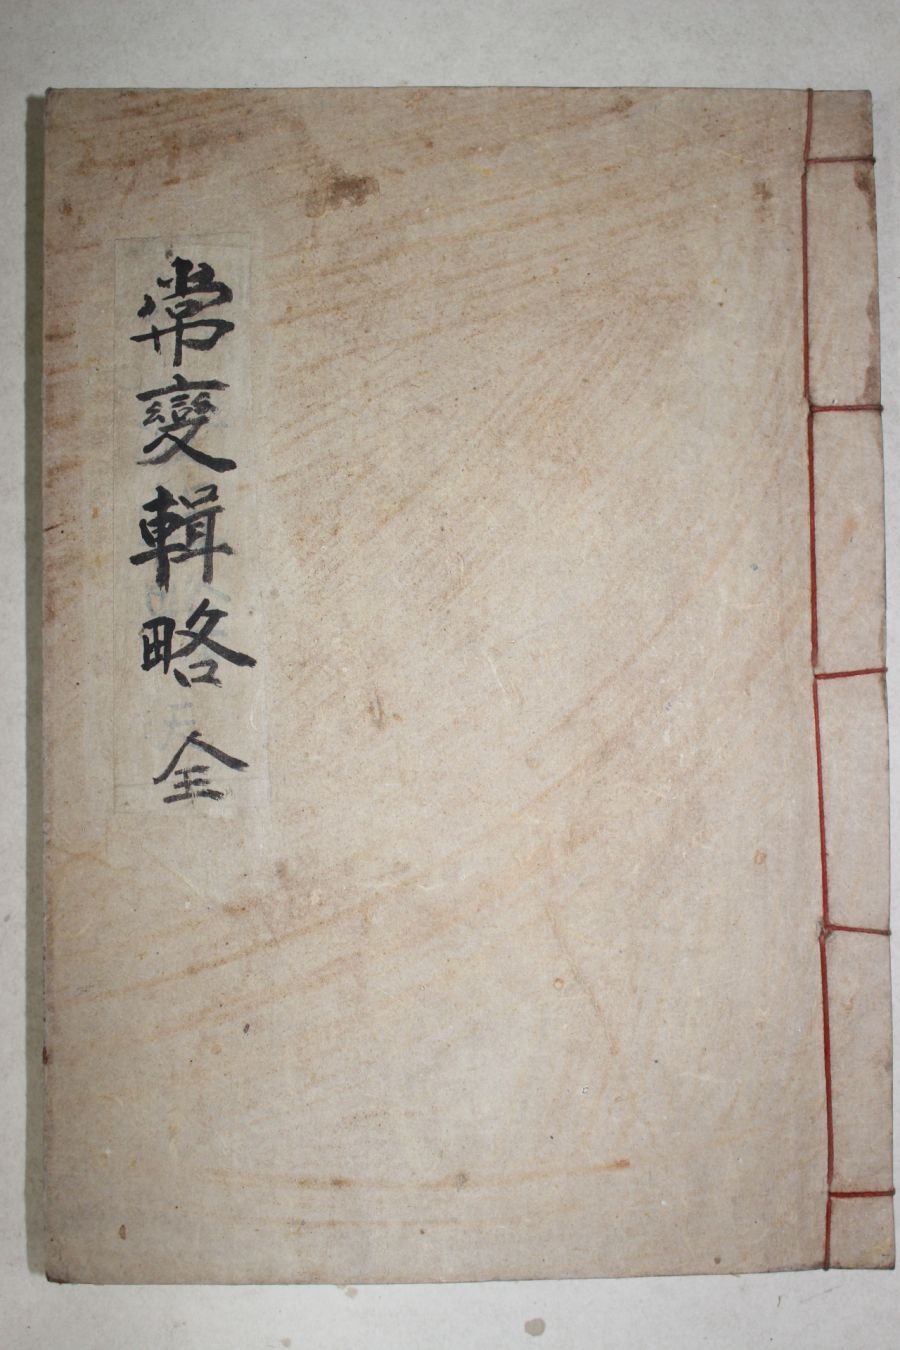 常變輯略 全